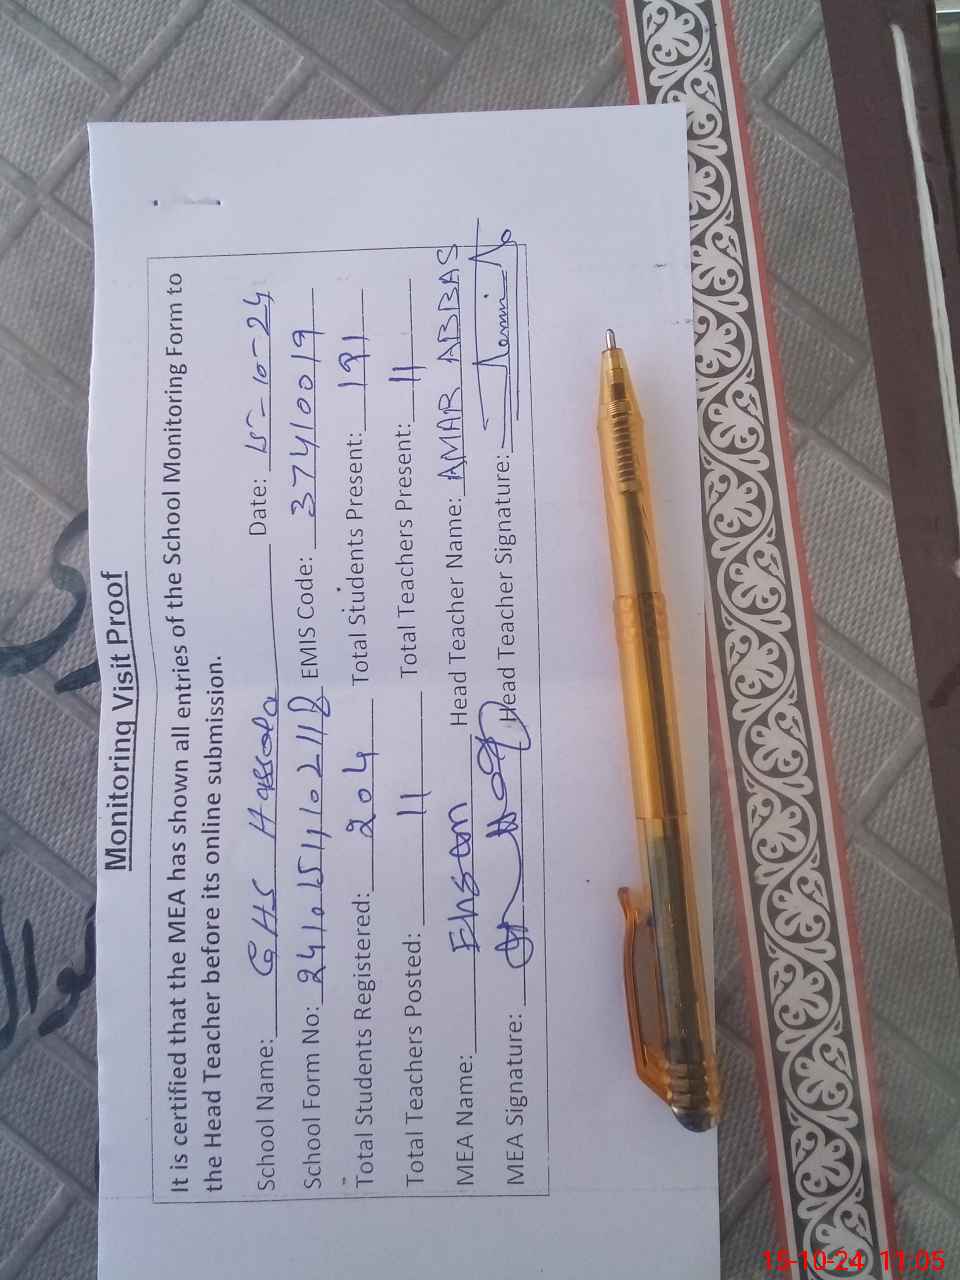 Monitoring Visit Proof
It is certified that the MEA has shown all entries of the School Monitoring Form to
the Head Teacher before its online submission.
School Name: GHS Date: 15-10-24
School Form No: EMIS Code: 37410019
Total Students Registered: 204 Total Students Present: 191
Total Teachers Posted: 11 Total Teachers Present: 11
MEA Name: Ehsan Head Teacher Name: AMAR ABBAS
MEA Signature: Head Teacher Signature:
15-10-24 11:05